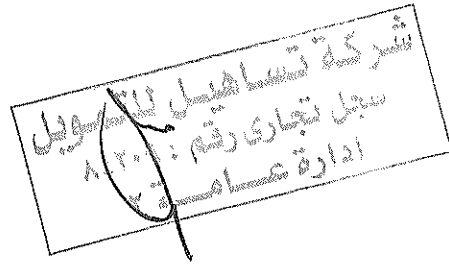 شركة تساهيل للتمويل
سجل تجارى رقم :
ادارة عـامـة